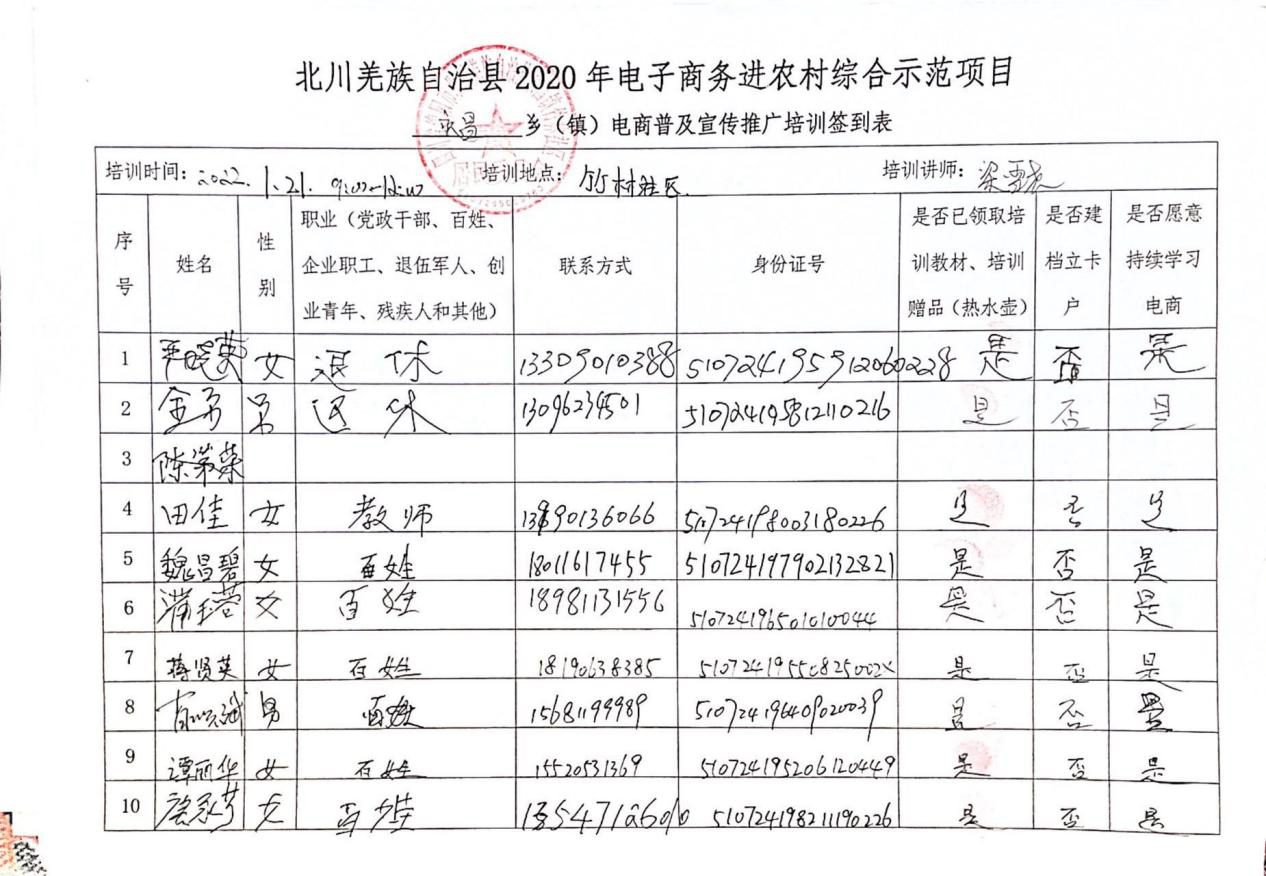 北川羌族自治县2020年电子商务进农村综合示范项目
永昌 乡（镇）电商普及宣传推广培训签到表
培训时间：2022.1.21. 9:00-12:00 培训地点： 竹村社区. 培训讲师：
序号 姓名 性别 职业（党政干部、百姓、企业职工、退伍军人、创业青年、残疾人和其他） 联系方式 身份证号 是否已领取培训教材、培训赠品（热水壶） 是否建档立卡户 是否愿意持续学习电商
1 女 退休 13309010388 510724195912060228 是 否 是
2 男 退休 13096234501 510724195812110216 是 否 是
3
4 田佳 女 教师 510724198003180226 是 否 是
5 魏昌碧 女 百姓 18011617455 510724197902132821 是 否 是
6 女 百姓 18981131556 510724196501010044 是 否 是
7 蒋贤英 女 百姓 18190638385 51072419550825002X 是 否 是
8 男 百姓 15681199989 510724196409020039 是 否 是
9 谭丽华 女 百姓 15520531369 510724195206120449 是 否 是
10 女 百姓 510724198211190226 是 否 是